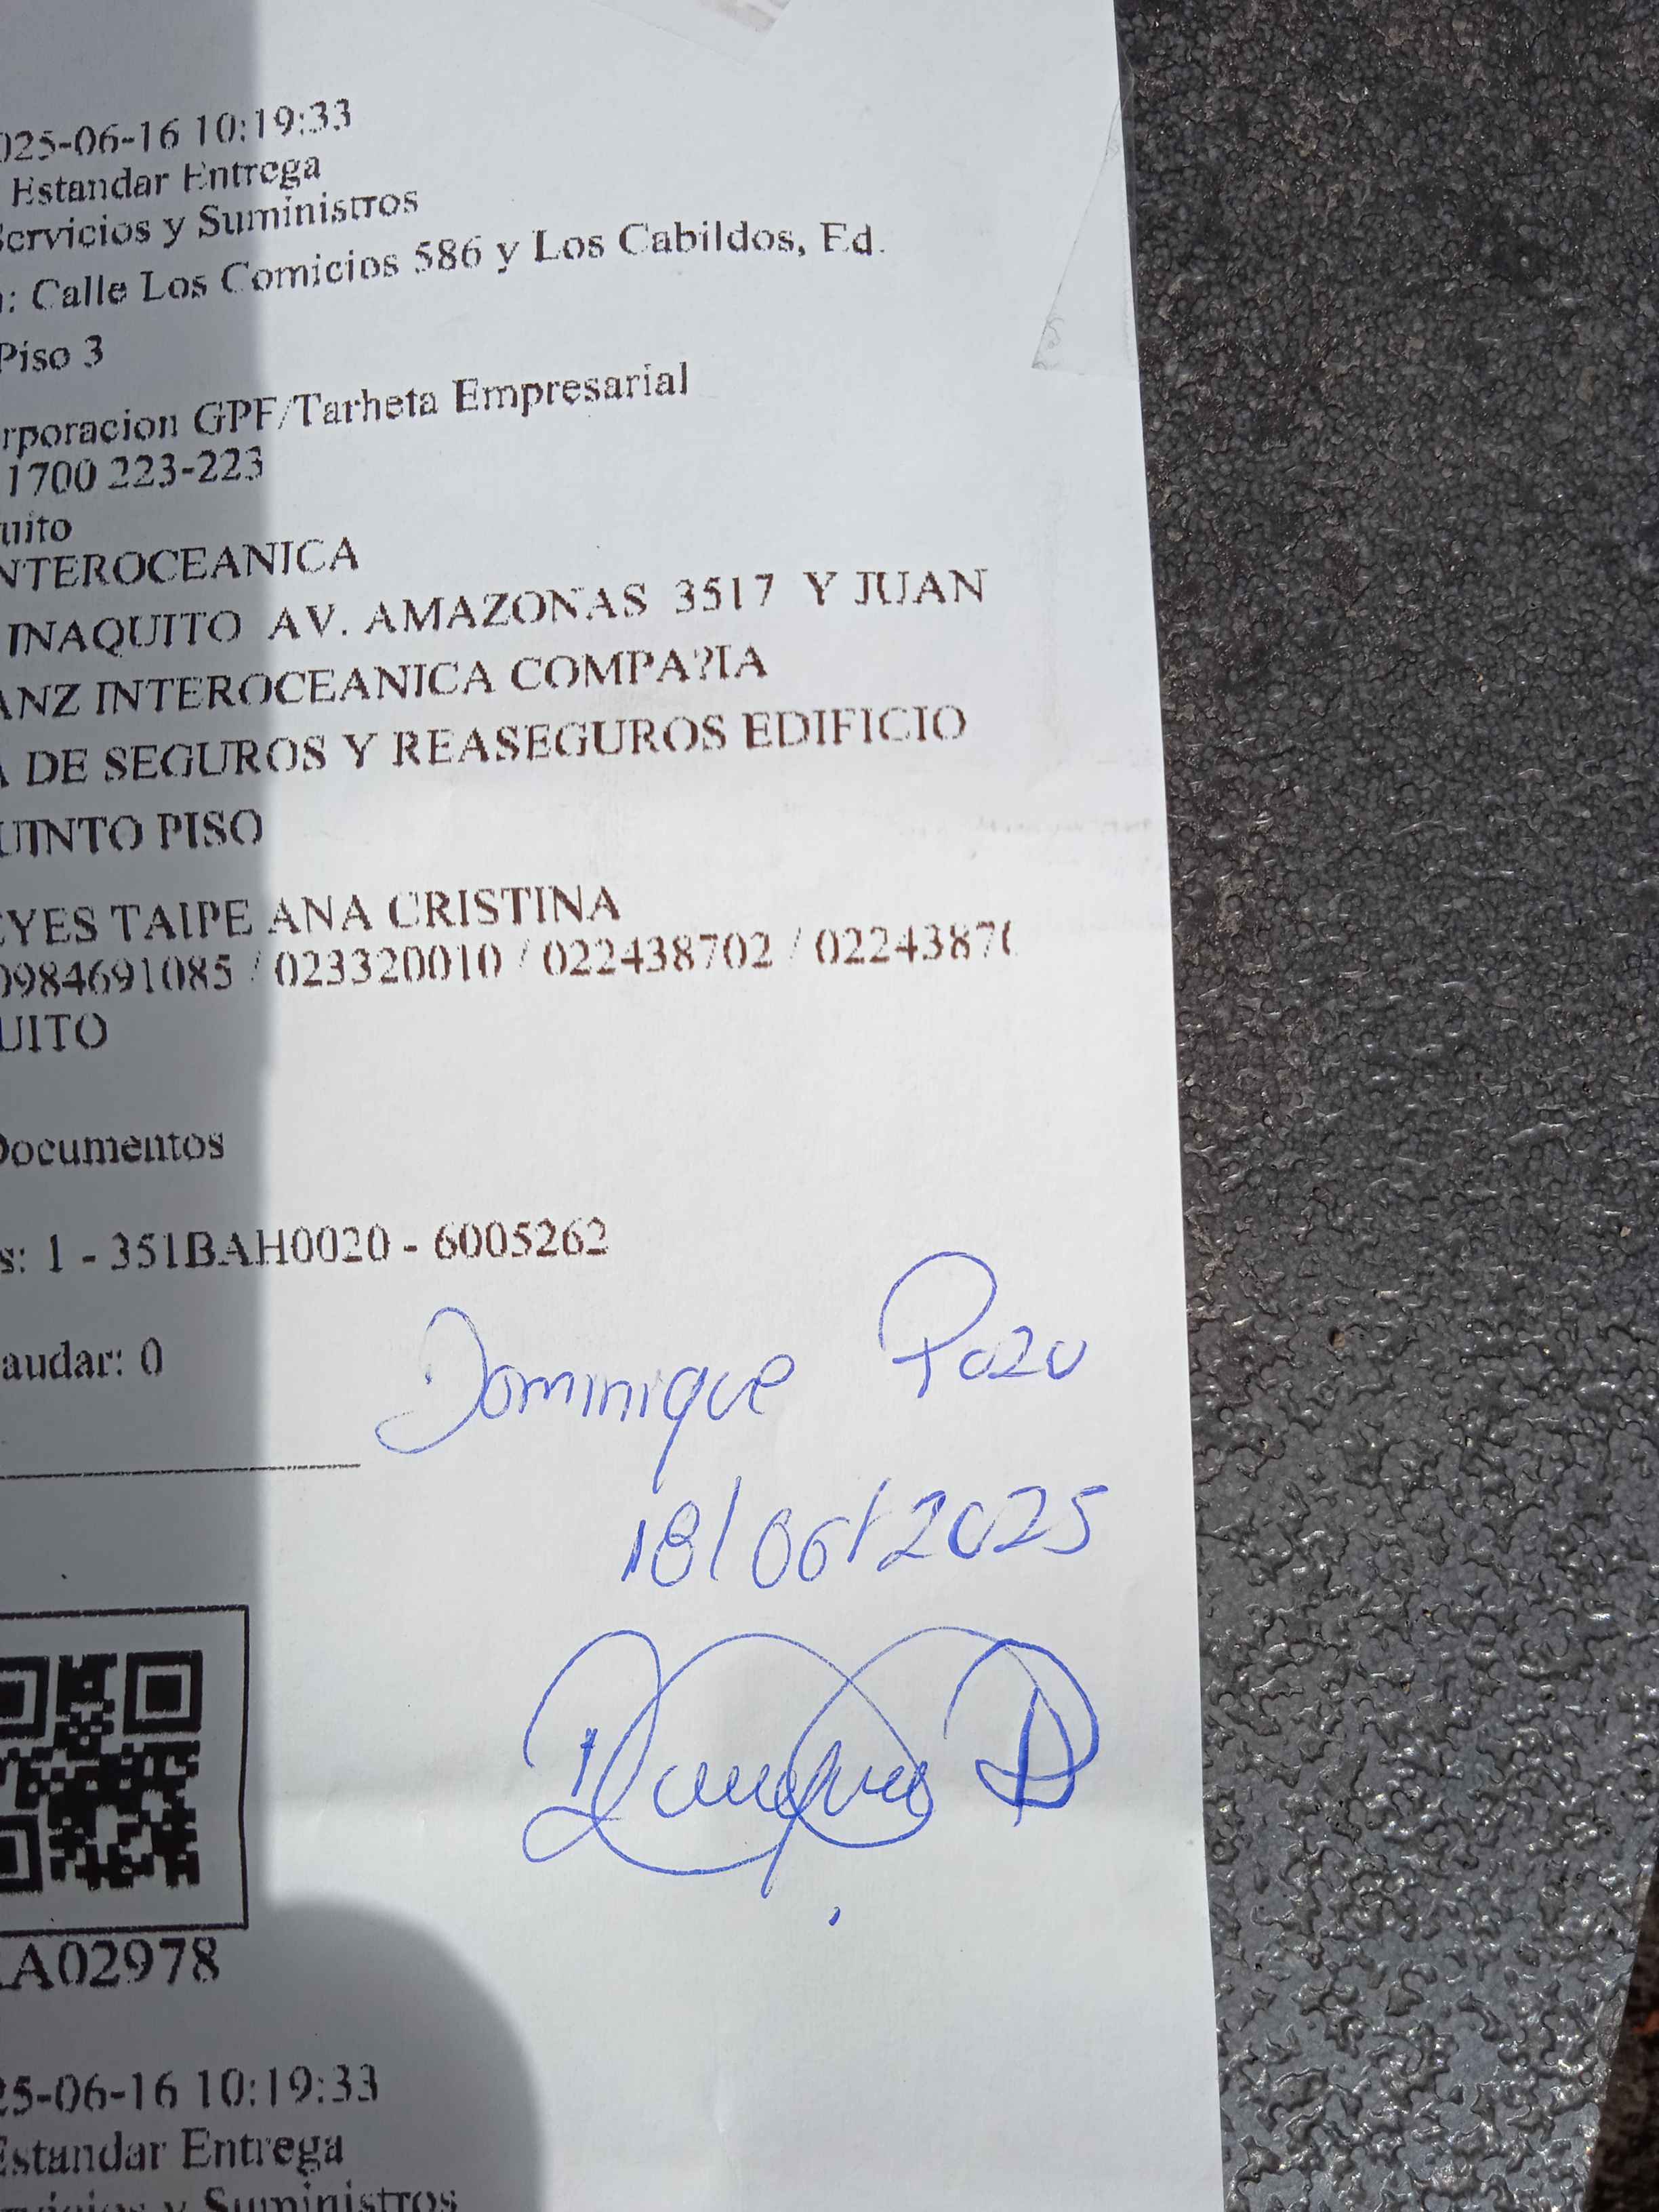 025-06-16 10:19:33
Estandar Entrega
Servicios y Suministros
n: Calle Los Comicios 586 y Los Cabildos, Ed.
Piso 3
rporacion GPF/Tarheta Empresarial
1700 223-223
uito
NTEROCEANICA
INAQUITO AV. AMAZONAS 3517 Y JUAN
ANZ INTEROCEANICA COMPA?IA
A DE SEGUROS Y REASEGUROS EDIFICIO
UINTO PISO
EYES TAIPE ANA CRISTINA
0984691085 / 023320010 / 022438702 / 02243870
UITO
Documentos
s: 1 - 351BAH0020 - 6005262
audar: 0
Dominique Pozo
18/06/2025
A02978
25-06-16 10:19:33
Estandar Entrega
rvicios y Suministros